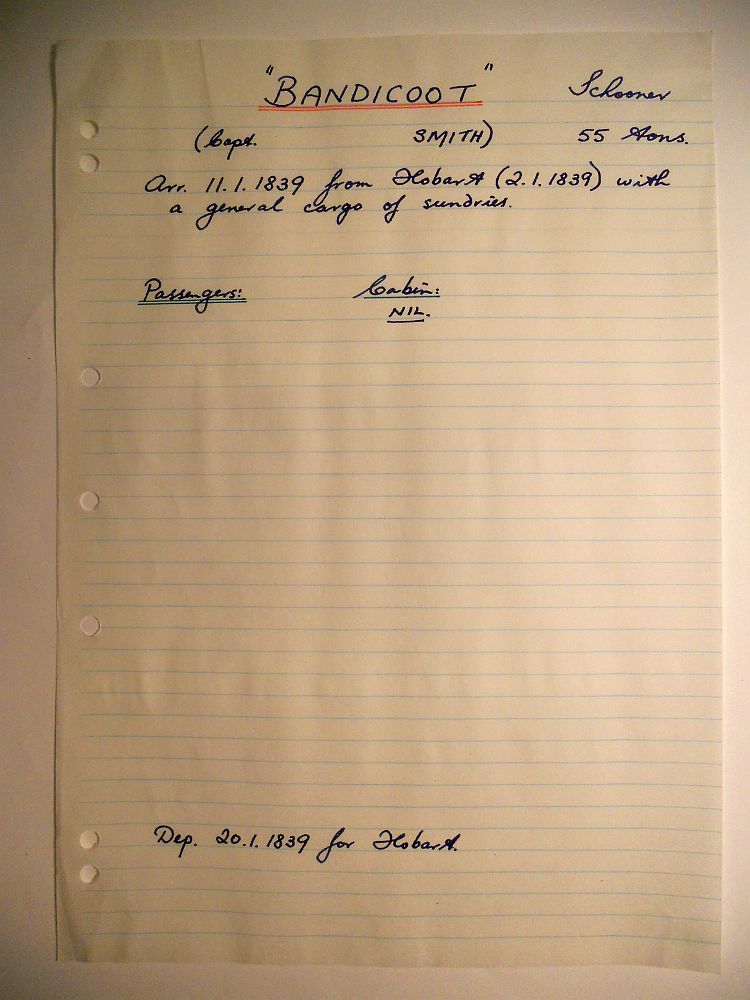 "BANDICOOT" Schooner
(Capt. SMITH) 55 tons.
Arr. 11.1.1839 from Hobart (2.1.1839) with
a general cargo of sundries.
Passengers: Cabin:
NIL.
Dep. 20.1.1839 for Hobart.